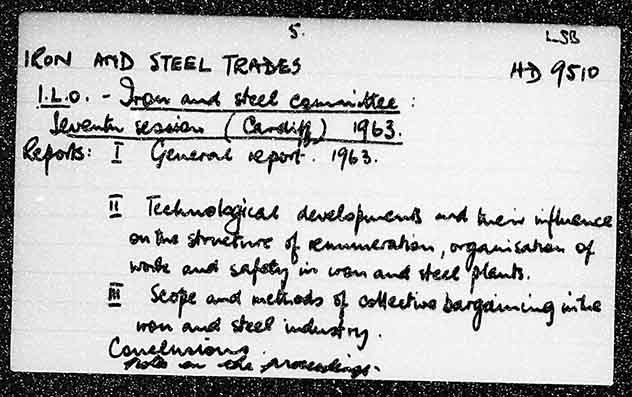 5.
LSB
IRON AND STEEL TRADES HD 9510
I.L.O. - Iron and steel committee :
Seventh session (Cardiff) 1963.
Reports: I General report. 1963.
II Technological developments and their influence
on the structure of remuneration, organisation of
work and safety in iron and steel plants.
III Scope and methods of collective bargaining in the
iron and steel industry.
Conclusions.
Note on the proceedings.